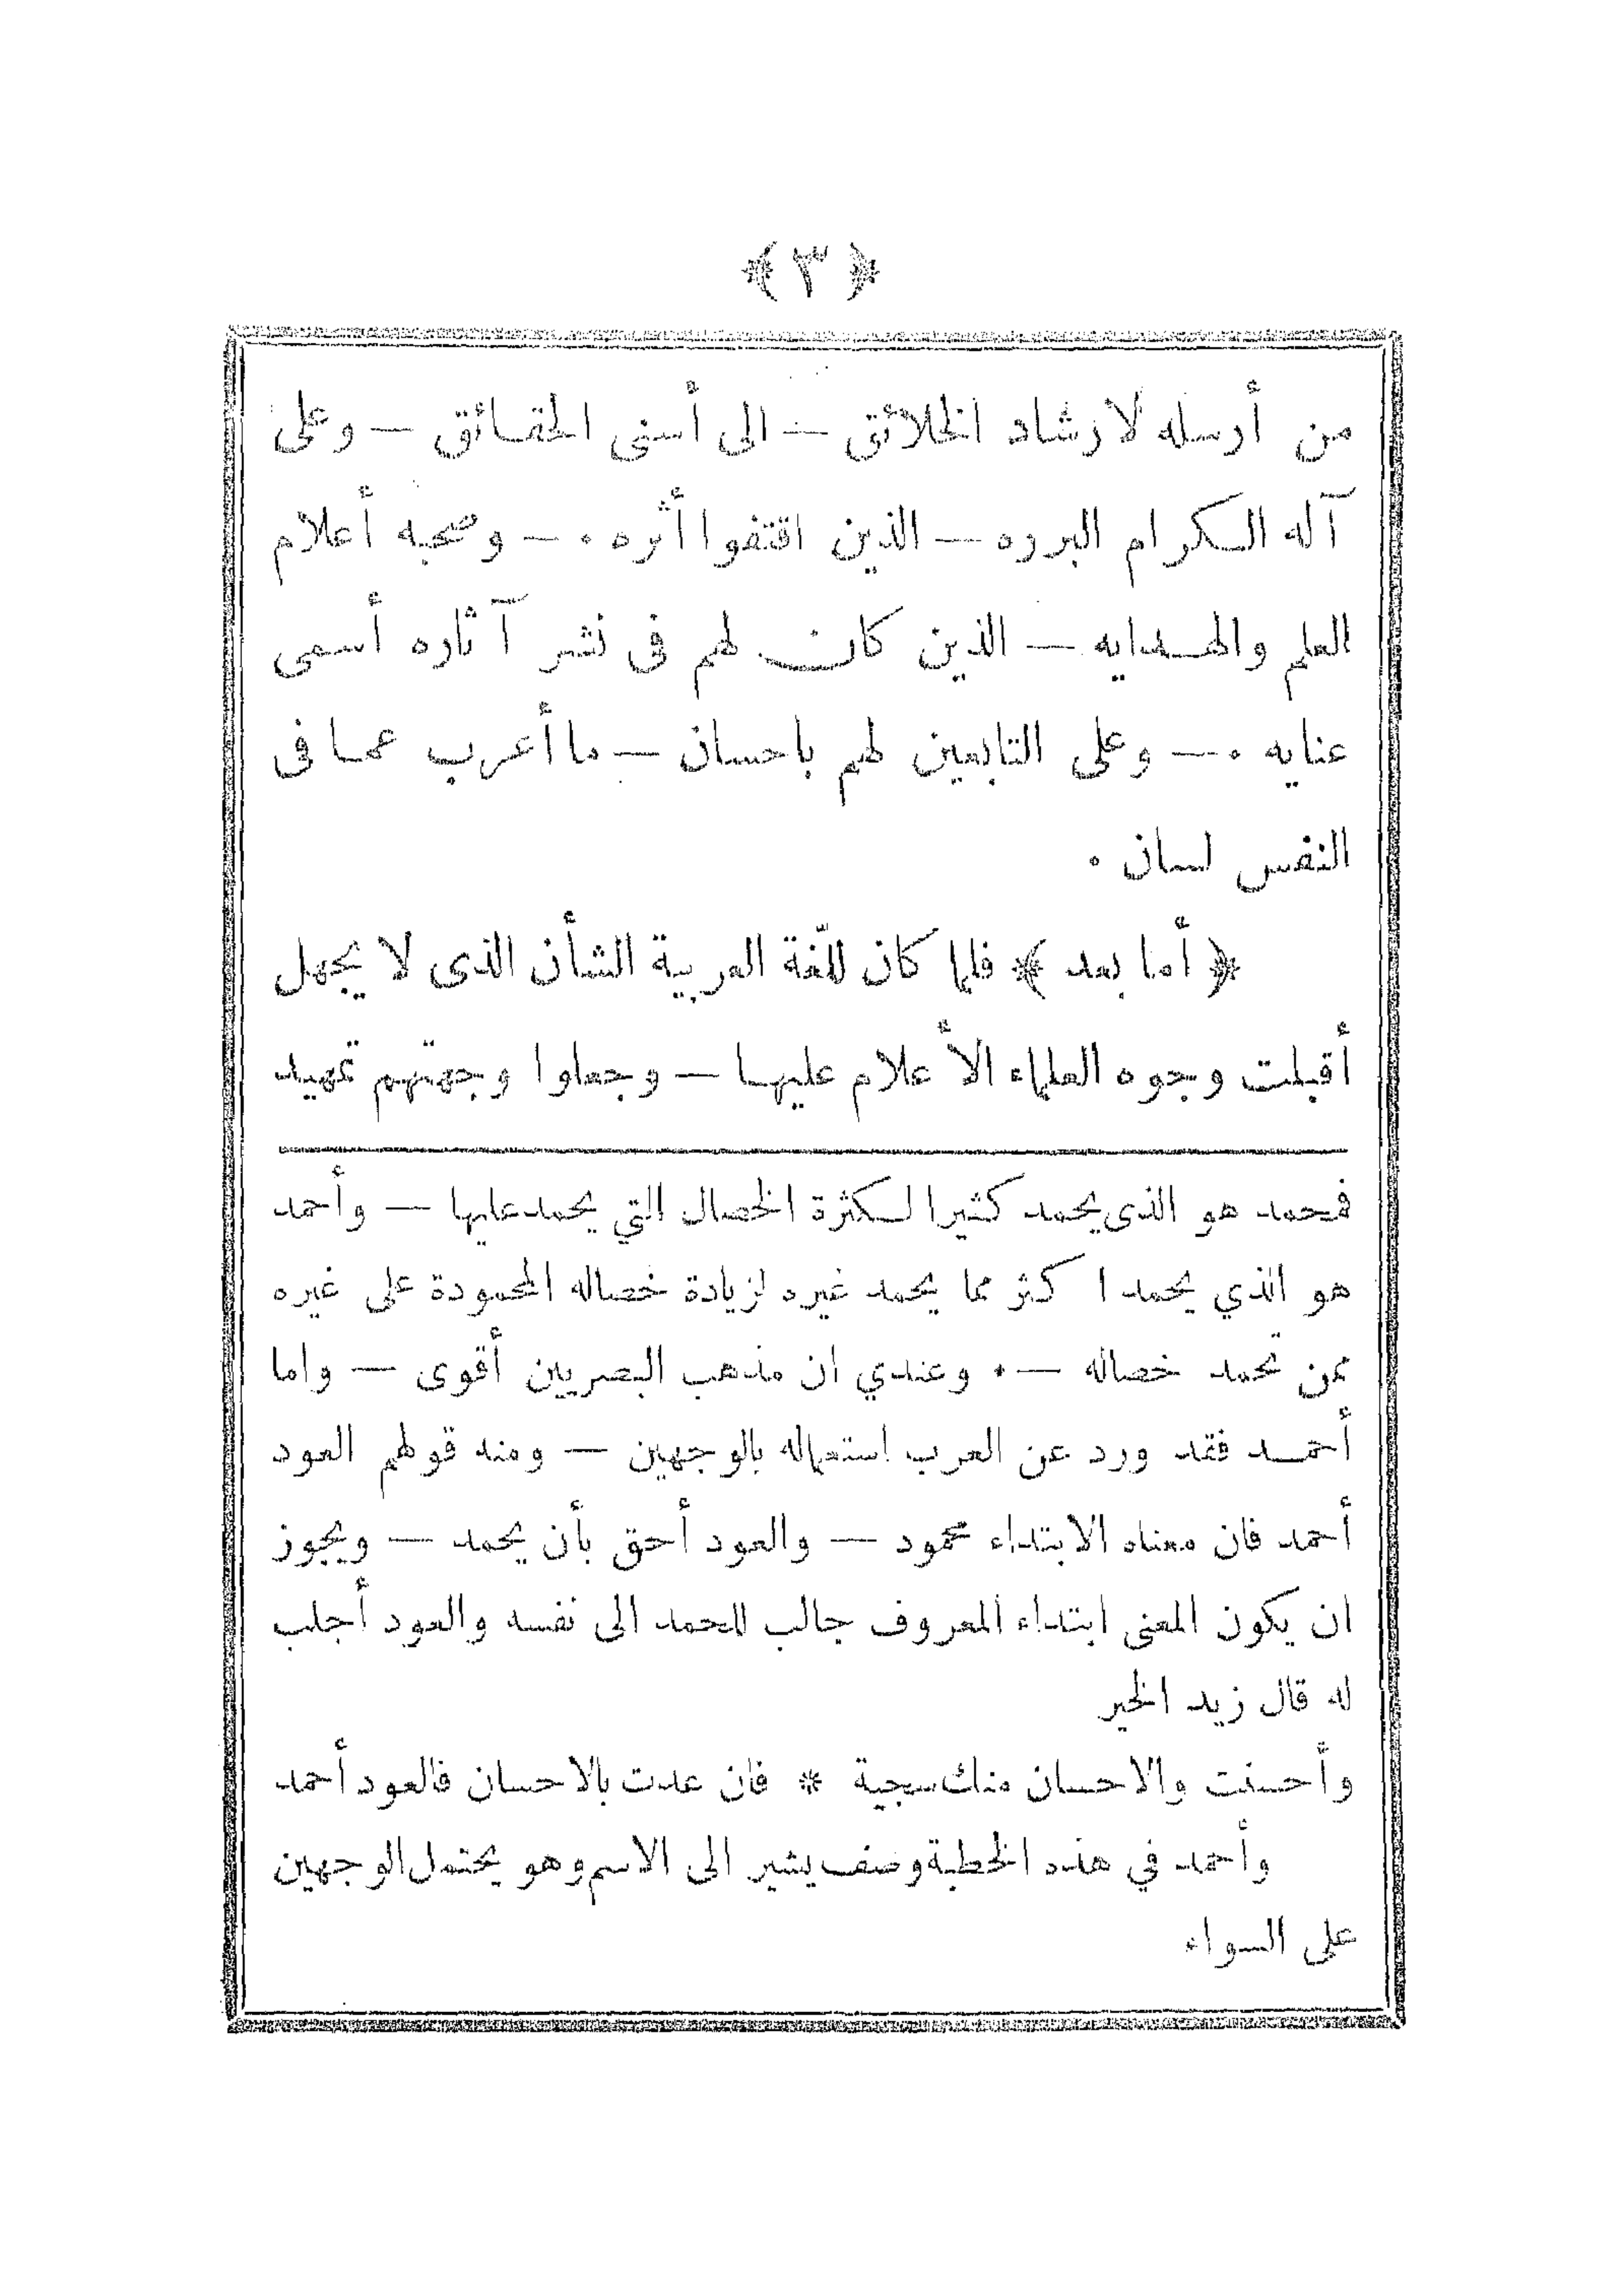 ﴿ ٣ ﴾
من أرسله لارشاد الخلائق — الى أسنى الحقائق — وعلى
آله الكرام البرره — الذين اقتفوا أثره ٠ — وصحبه أعلام
العلم والهدايه — الذين كان لهم فى نشر آثاره أسمى
عنايه ٠ — وعلى التابعين لهم باحسان — ما أعرب عما فى
النفس لسان ٠
﴿ أما بعد ﴾ فلما كان للّغة العربية الشأن الذى لا يجهل
أقبلت وجوه العلماء الأعلام عليها — وجعلوا وجهتهم تمهيد
فمحمد هو الذى يحمد كثيرا لكثرة الخصال التي يحمد عليها — وأحمد
هو الذي يحمد اكثر مما يحمد غيره لزيادة خصاله المحمودة على غيره
ممن تحمد خصاله — ٠ وعندي ان مذهب البصريين أقوى — واما
أحمد فقد ورد عن العرب استعماله بالوجهين — ومنه قولهم العود
أحمد فان معناه الابتداء محمود — والعود أحق بأن يحمد — ويجوز
ان يكون المعنى ابتداء المعروف جالب للحمد الى نفسه والعود أجلب
له قال زيد الخير
وأحسنت والاحسان منك سجية * فان عدت بالاحسان فالعود أحمد
وأحمد في هذه الخطبة وصف يشير الى الاسم وهو يحتمل الوجهين
على السواء